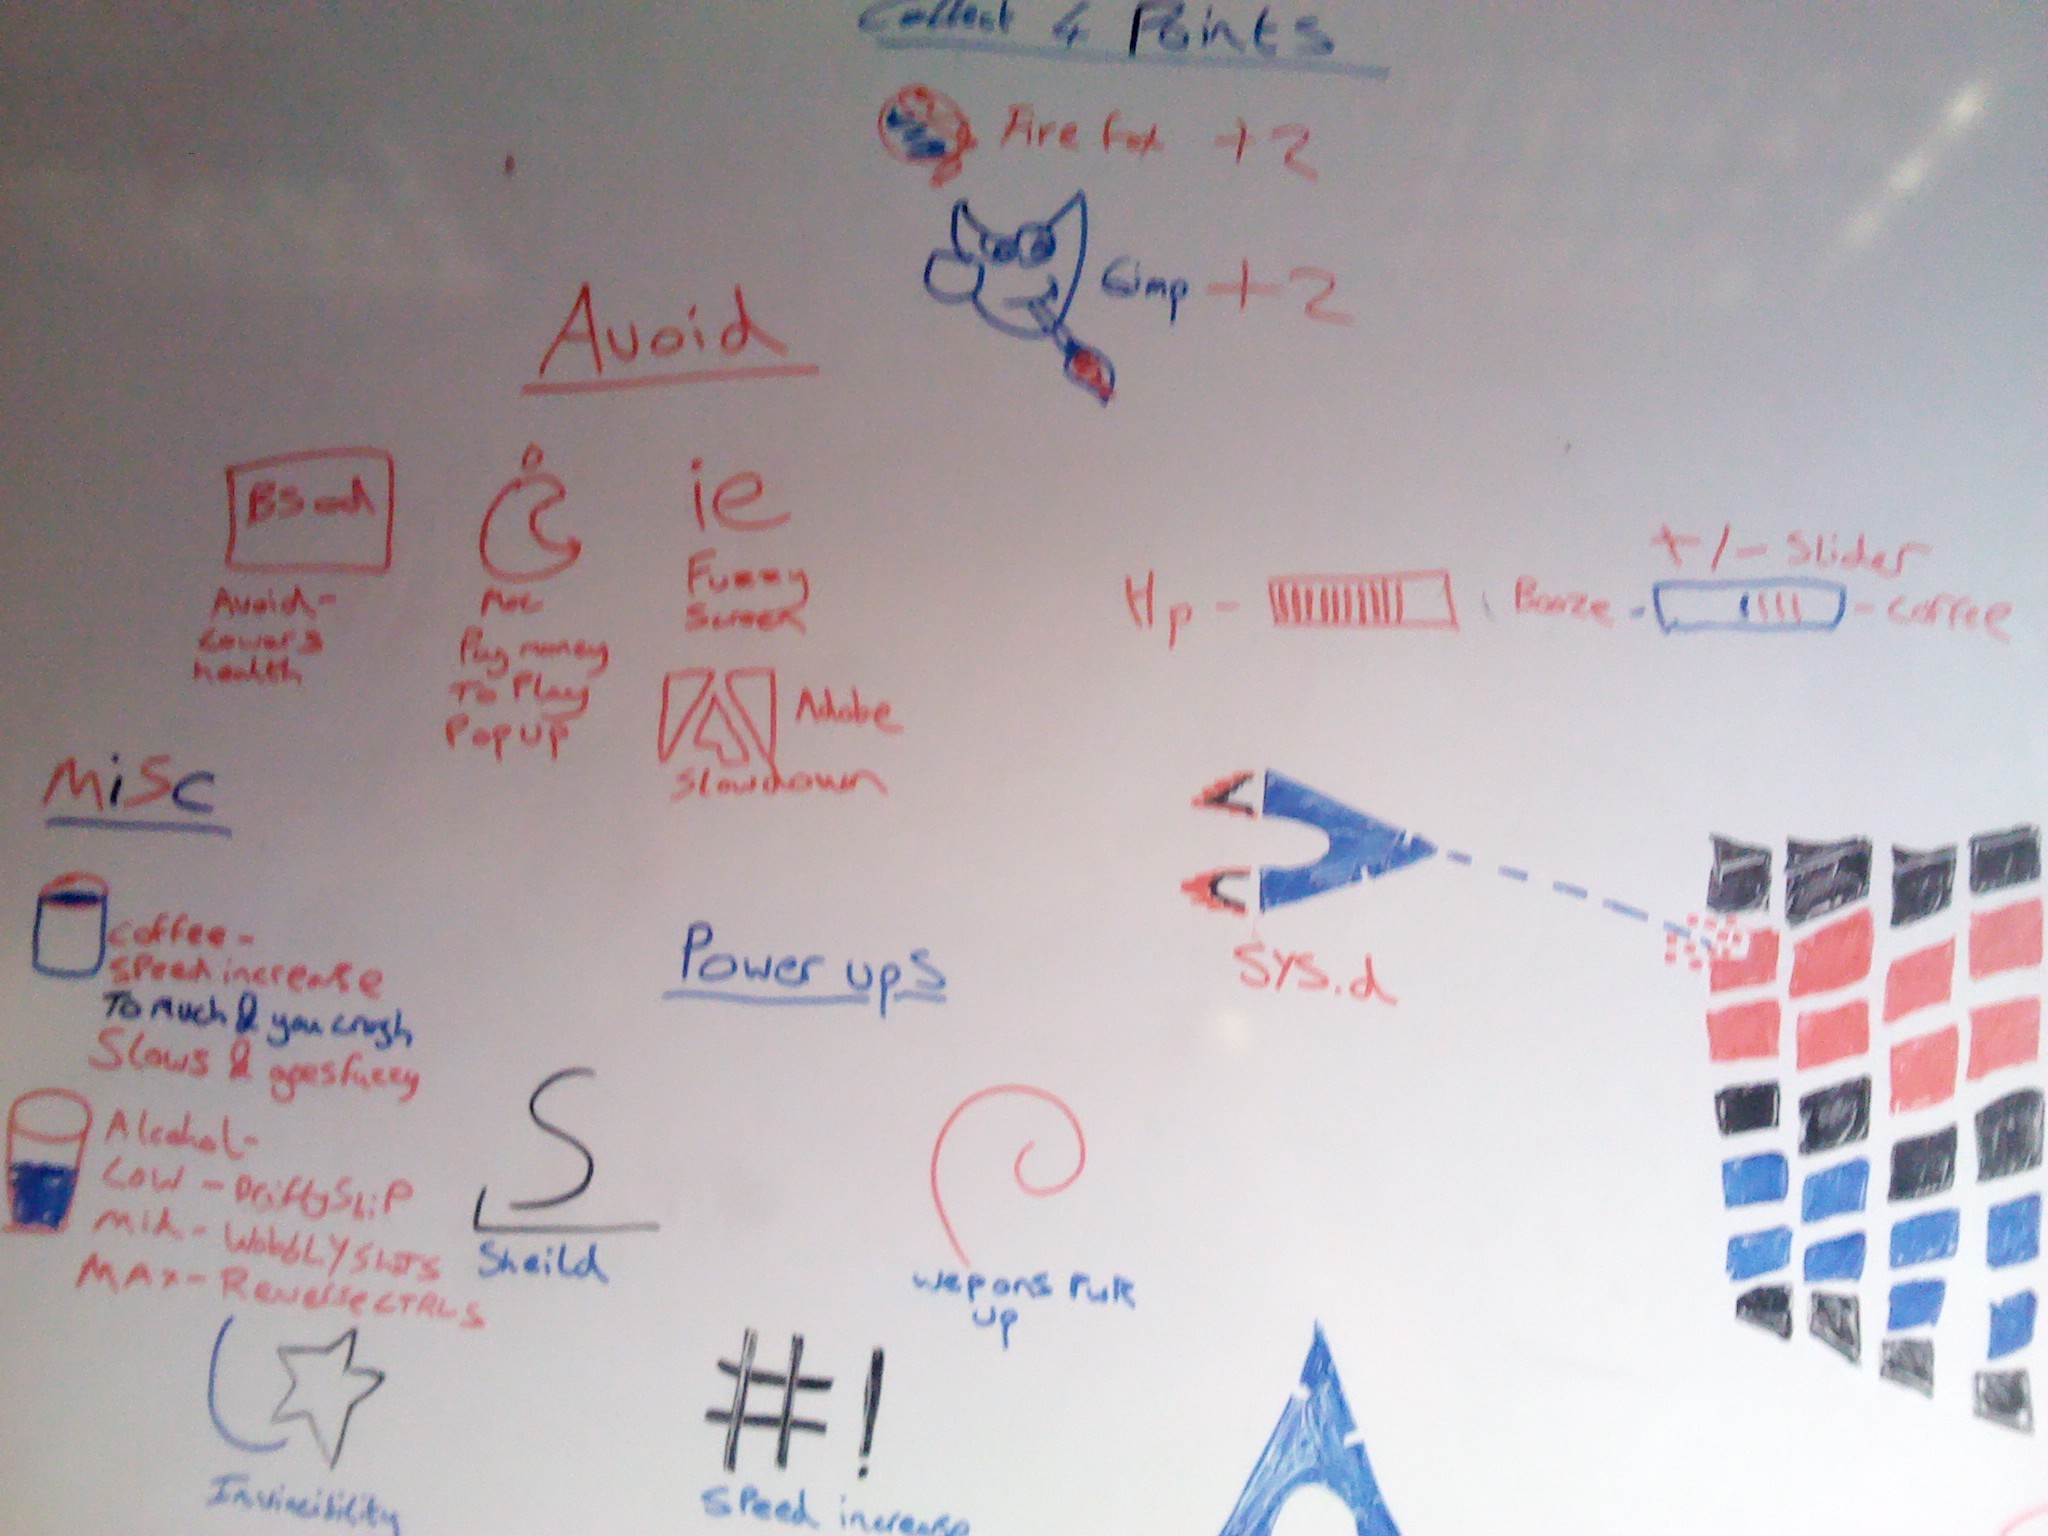 Collect 4 Points
Fire fox +2
Gimp +2
Avoid
BSod
Avoid-
Lowers
health
Mac
Pay money
To Play
Pop up
ie
Fuzzy
Screen
Adobe
Slowdown
+/- Slider
Hp -
Booze - - Coffee
SYS.d
Misc
Coffee-
Speed increase
To much & you crash
Slows & goes fuzzy
Alcohol-
Low - Drifty Slip
Mid - Wobbly
MAX- Reverse CTRLS
Power ups
S
Sheild
wepons
up
Invincibility
#!
Speed increase